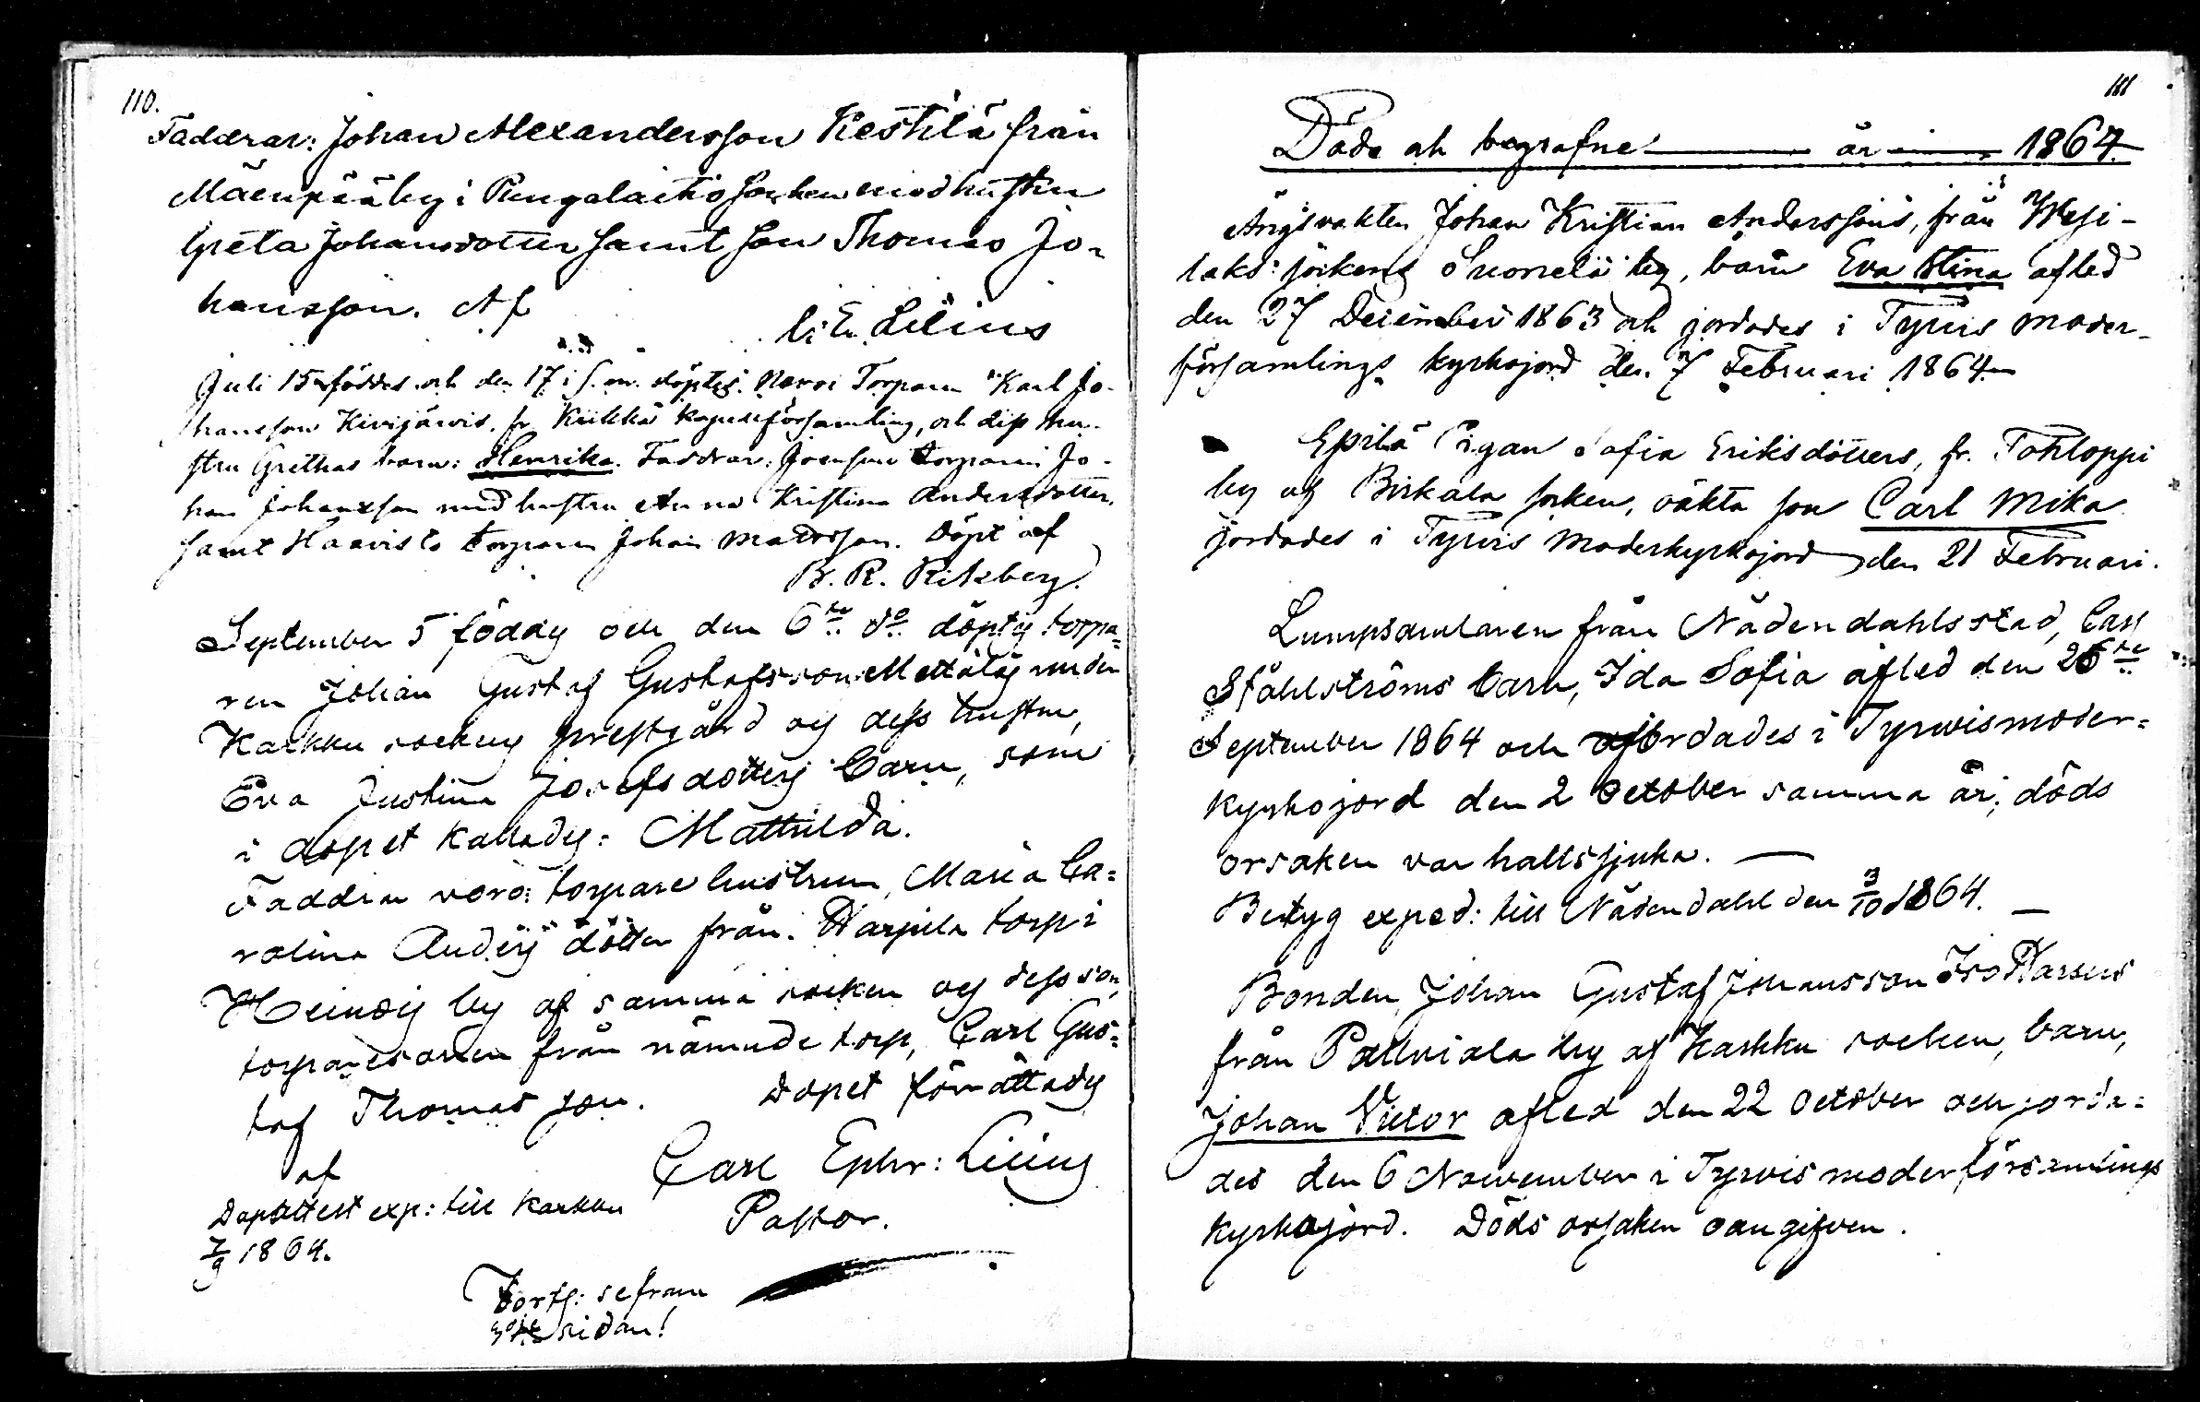 110.
Faddrar: Johan Alexandersson Kestilä från
Mäenpää by i Pungalaitio Socken med hustru
Greta Johansdotter samt son Thomas Jo-
hansson. Af
C. E. Lilius
Juli 15 föddes och den 17 i s. m. döptes Torparen Karl Jo-
hansson Kivijärvis, fr Kiikka kapellförsamling, och dess hu-
stru Grethas barn: Henrika. Faddrar: torparen Jo-
han Johansson med hustru Anna Kristina Andersdotter,
samt Haavisto torparen Johan Matsson. Döpt af
B. R. Ritzberg.
September 5 föddes och den 6te do döptes torpa-
ren Johan Gustaf Gustafsson Mettäläs under
Karkku sockens prestgård og dess hustru,
Eva Justina Josefsdotters barn, som
i dopet kallades: Mathilda.
Faddrar voro: torpare hustrun, Maria Ca=
rolina Anders dotter från Harpila torp i
Heinois by af samma socken og dess son,
torparesonen från nämnde torp, Carl Gus=
taf Thomasson. Dopet förrättades
af Carl Ephr: Lilius
Pastor.
Dopattest exp: till Karkku
7/9 1864.
Forts: se fram
sidan!
111
Döde och begrafne år 1864
Ängsvakten Johan Kristian Anderssons, från Wesi-
laks sockens Suonelä by, barn Eva Stina afled
den 27 December 1863 och jordades i Tyrvis moder-
församlings kyrkojord den 7 Februari 1864
Epilä Pigan Sofia Eriksdotters, fr. Tohloppi
by af Birkala socken, oäkta son Carl Mika
jordades i Tyrvis Moderkyrkojord den 21 Februari.
Lumpsamlaren från Nådendahls stad, Carl
Ståhlströms barn, Ida Sofia afled den 26te
September 1864 och jordades i Tyrwis moder=
kyrkojord den 2 October samma år; döds
orsaken var halssjuka.
Betyg exped: till Nådendahl den 3/10 1864.
Bonden, Johan Gustaf Johansson Iso Warsus
från Palviala by af Karkku socken, barn,
Johan Victor afled den 22 October och jorda=
des den 6 November i Tyrvis moderförsamlings
kyrkojord. Döds orsaken oangifven.